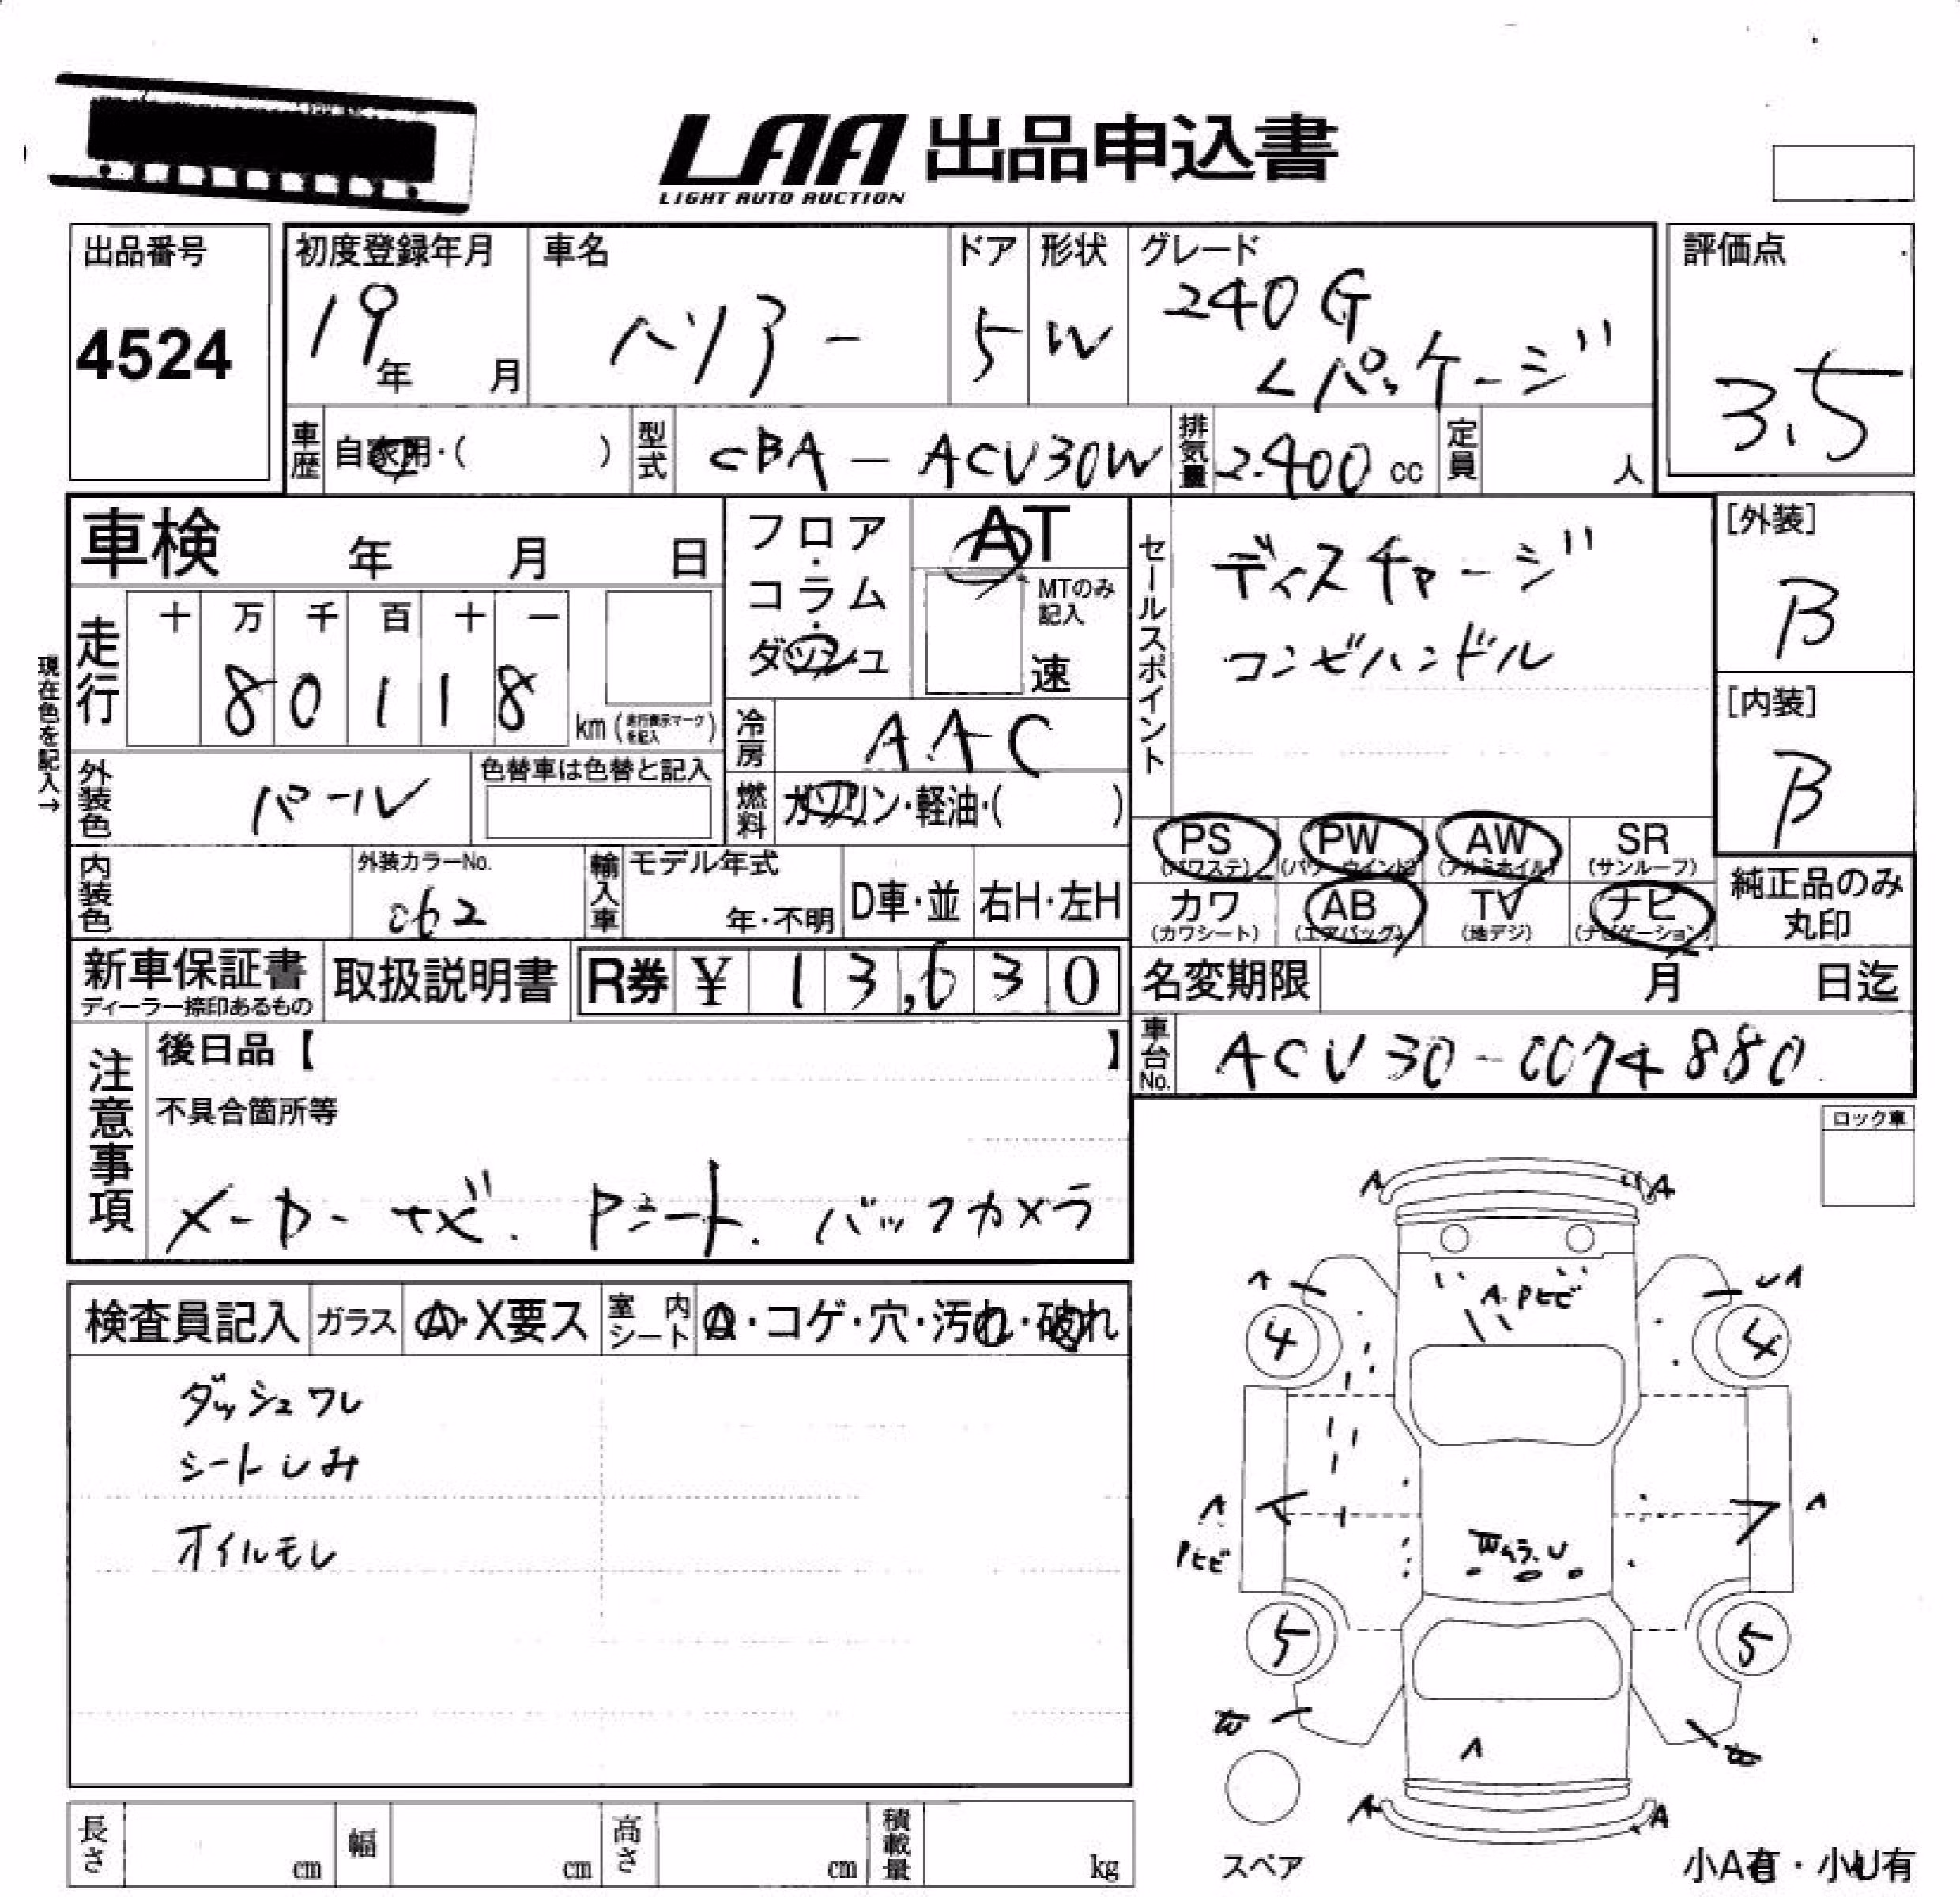 LAA 出品申込書
LIGHT AUTO AUCTION
出品番号
4524
初度登録年月
19年 月
車名
ハリアー
ドア
5
形状
W
グレード
240G
Lパッケージ
評価点
3.5
車歴 自家用・( )
型式 CBA-ACU30W
排気量 2400cc
定員 人
車検 年 月 日
フロア・コラム・ダッシュ
AT
MTのみ記入
速
セールスポイント
ディスチャージ
コンビハンドル
[外装]
B
[内装]
B
現在色を記入→
走行
十 万 千 百 十 一
8 0 1 1 8
km (走行表示マークを記入)
冷房 AAC
外装色 パール
色替車は色替と記入
燃料 ガソリン・軽油・( )
PS (パワステ) PW (パワーウインド) AW (アルミホイル) SR (サンルーフ)
カワ (カワシート) AB (エアバッグ) TV (地デジ) ナビ (ナビゲーション)
純正品のみ丸印
内装色
外装カラーNo.
062
輸入車 モデル年式
年・不明
D車・並 右H・左H
新車保証書
ディーラー捺印あるもの
取扱説明書
R券 ¥ 13,630
名変期限 月 日迄
車台No. ACU30-0074880
注意事項
後日品【 】
不具合箇所等
メーカーナビ. Pシート. バックカメラ
ロック車
検査員記入 ガラス A・X要ス 室内シート ・コゲ・穴・汚れ・破れ
ダッシュワレ
シートしみ
オイルモレ
A A
A A.Pヒビ UA
4 4
A A
Pヒビ
Wムラ.U
5 5
W W
A
A A
スペア
小A有・小U有
長さ cm 幅 cm 高さ cm 積載量 kg